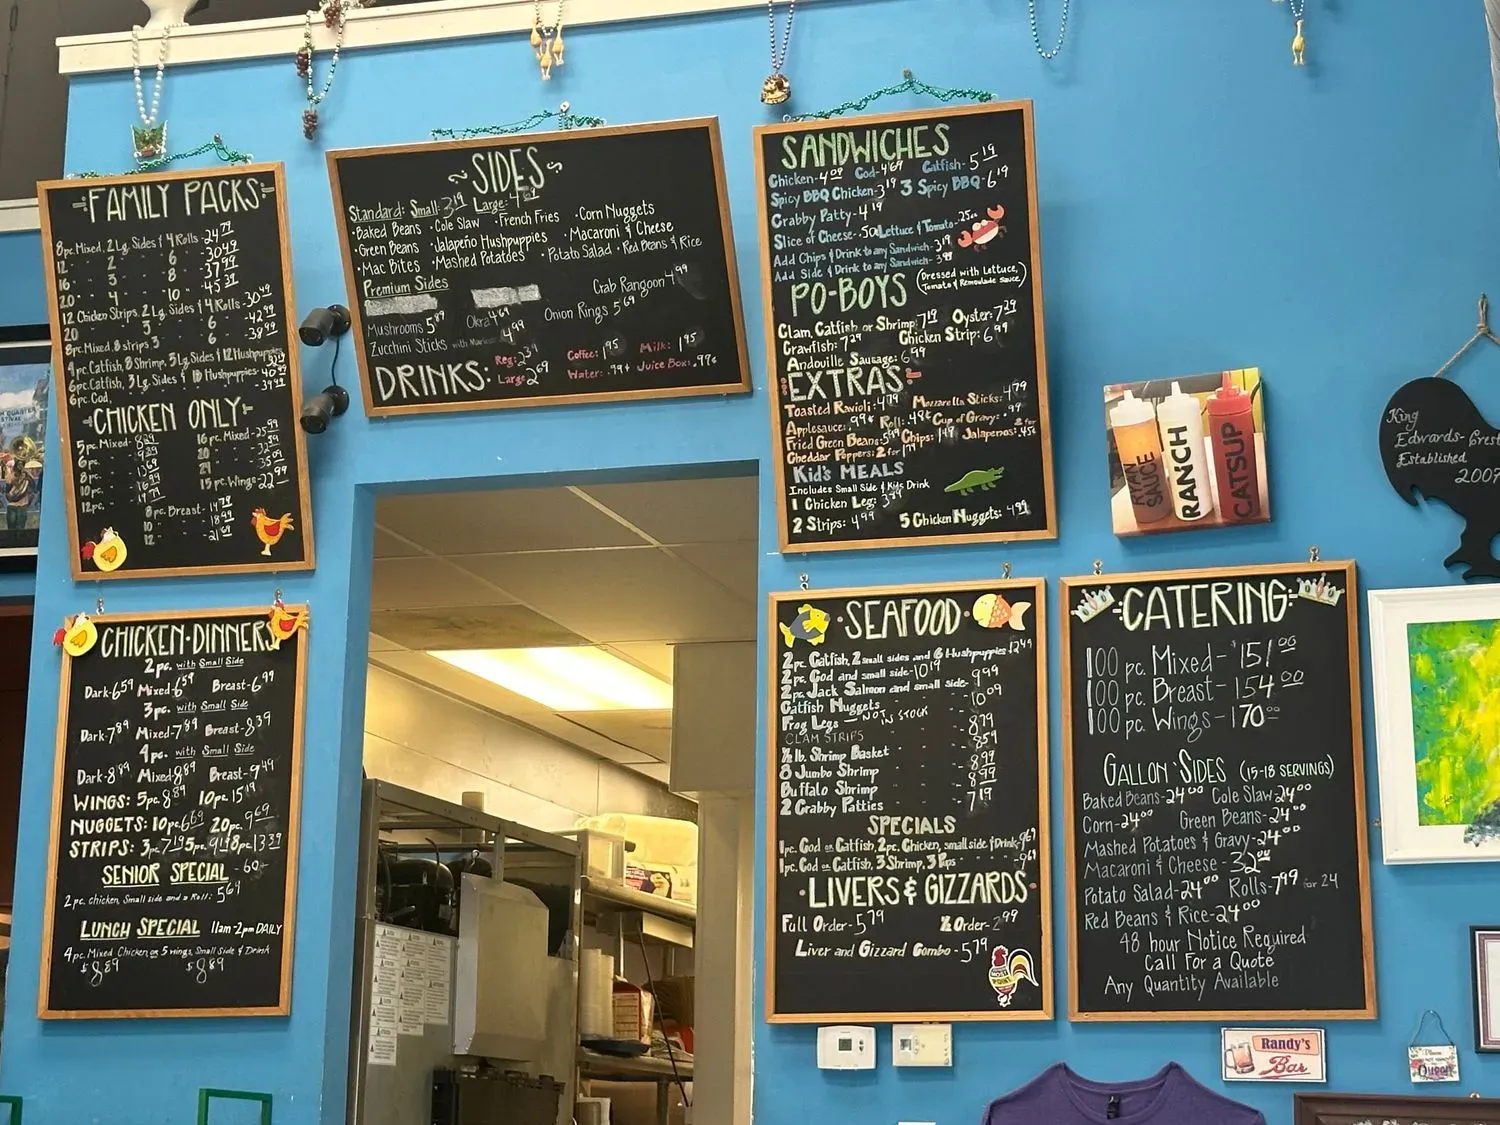 FAMILY PACKS
8pc. Mixed, 2 Lg. Sides & 4 Rolls - 24.77
12 " " 2 " " 6 " - 30.49
16 " " 3 " " 8 " - 37.99
20 " " 4 " " 10 " - 45.37
12 Chicken Strips, 2 Lg. Sides & 4 Rolls - 30.49
20 " " 3 " " 6 " - 42.99
8pc. Mixed, 8 strips, 3 " " 6 " - 38.99
4pc. Catfish, 8 Shrimp, 3 Lg. Sides & 12 Hushpuppies
6pc. Catfish, 3 Lg. Sides & Hushpuppies
6pc. Cod,
CHICKEN ONLY
5pc. Mixed - 8.29
6pc.
8pc.
10pc.
12pc.
16 pc. Mixed - 25.99
20
24
15 pc. Wings - 22.99
8 pc. Breast - 14.79
10 " " - 18.99
12 " " - 21.69
SIDES
Standard: Small: 3.19 Large: 4.69
•Baked Beans •Cole Slaw •French Fries •Corn Nuggets
•Green Beans •Jalapeño Hushpuppies •Macaroni & Cheese
•Mac Bites •Mashed Potatoes •Potato Salad •Red Beans & Rice
Premium Sides
Crab Rangoon 4.99
Mushrooms 5.89 Okra 4.69 Onion Rings 5.69
Zucchini Sticks with 4.99
DRINKS:
Reg: Coffee: 1.95 Milk: 1.95
Large 2.69 Water: .99¢ Juice Box: .99¢
SANDWICHES
Chicken - 4.09 Cod - 4.69 Catfish - 5.19
Spicy BBQ Chicken - 3.19 3 Spicy BBQ - 6.19
Crabby Patty - 4.19
Slice of Cheese - .50 Lettuce & Tomato - .25ea
Add Chips & Drink to any Sandwich - 3.19
Add Side & Drink to any Sandwich - 3.99
PO-BOYS (Dressed with Lettuce, Tomato & Remoulade Sauce)
Clam, Catfish or Shrimp: 7.19 Oyster: 7.29
Crawfish: 7.29 Chicken Strip: 6.99
Andouille Sausage: 6.99
EXTRAS
Toasted Ravioli: 4.79 Mozzarella Sticks: 4.79
Applesauce: .99¢ Roll: .49¢ Cup of Gravy: .99
Fried Green Beans: 5.99 Chips: 1.49 Jalapenos: .45¢
Cheddar Poppers: 2 for 1.79
Kid's MEALS
Includes Small Side & Kids Drink
1 Chicken Leg: 3.99
2 Strips: 4.99 5 Chicken Nuggets: 4.99
RYAN SAUCE
RANCH
CATSUP
King
Edwards-Crest
Established
2007
CHICKEN·DINNERS
2 pc. with Small Side
Dark - 6.59 Mixed - 6.59 Breast - 6.99
3 pc. with Small Side
Dark - 7.89 Mixed - 7.89 Breast - 8.39
4 pc. with Small Side
Dark - 8.89 Mixed - 8.89 Breast - 9.49
WINGS: 5pc. 8.89 10pc. 15.19
NUGGETS: 10pc. 6.69 20pc. 9.69
STRIPS: 3pc. 7.19 5pc. 9.19 8pc. 13.39
SENIOR SPECIAL - 60+
2 pc. chicken, Small side and a Roll: 5.69
LUNCH SPECIAL 11am-2pm DAILY
4pc. Mixed Chicken or 5 wings, Small Side & Drink
$8.89 $8.89
SEAFOOD
2pc. Catfish, 2 small sides and 6 Hushpuppies 12.49
2pc. Cod and small side - 10.19
2pc. Jack Salmon and small side - 9.99
Catfish Nuggets " " - 10.09
Frog Legs - NOT IN STOCK
CLAM STRIPS - 8.79
½ lb. Shrimp Basket - 8.59
8 Jumbo Shrimp - 8.99
Buffalo Shrimp - 8.99
2 Crabby Patties - 7.19
SPECIALS
1pc. Cod or Catfish, 2pc. Chicken, small side & Drink - 9.69
1pc. Cod or Catfish, 3 Shrimp, 3 Pups - 9.69
LIVERS & GIZZARDS
Full Order - 5.79 ½ Order - 2.99
Liver and Gizzard Combo - 5.79
CATERING
100 pc. Mixed - $151.00
100 pc. Breast - 154.00
100 pc. Wings - 170.00
GALLON SIDES (15-18 SERVINGS)
Baked Beans - 24.00 Cole Slaw - 24.00
Corn - 24.00 Green Beans - 24.00
Mashed Potatoes & Gravy - 24.00
Macaroni & Cheese - 32.00
Potato Salad - 24.00 Rolls - 7.99 for 24
Red Beans & Rice - 24.00
48 hour Notice Required
Call For a Quote
Any Quantity Available
Randy's
Bar
Queen